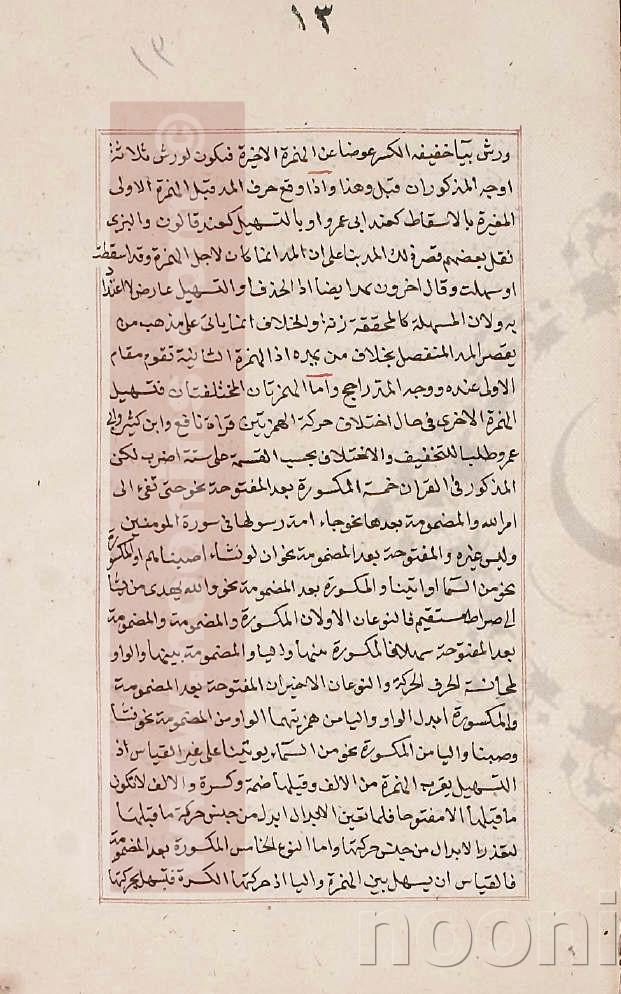 ١٣
١٣
ورش بياء خفيفه الكسر عوضا عن الهمزة الاخيرة فيكون لورش ثلاثة
اوجه المذكوران قبل وهذا واذا وقع حرف المد قبل الهمزة الاولى
المغيرة بالاسقاط كعند ابى عمرو او بالتسهيل كعند قالون والبزى
نقل بعضهم قصر ذلك المد بنا على ان المد انما كان لاجل الهمزة وقد اسقطت
او سهلت وقال اخرون بمد ايضا اذ الحذف والتسهيل عارض لا اعتداد
به ولان المسهلة كالمحققة زنة والخلاف انما ياتى على مذهب من
يقصر المد المنفصل بخلاف من يمده اذ الهمزة الثانية تقوم مقام
الاولى عنده ووجه المد راجح واما الهمزتان المختلفتان فتسهيل
الهمزة الاخرى فى حال اختلاف حركة الهمزتين قراة نافع وابن كثير وابى
عمرو طلبا للتخفيف والاختلاف بحسب القسمة على ستة اضرب لكن
المذكور فى القران خمسة المكسورة بعد المفتوحة نحو حتى تفئ الى
امر الله والمضمومة بعدها نحو جاء امة رسولها فى سورة المومنين
وليس غيره والمفتوحة بعد المضمومة نحو ان لو نشاء اصبناهم او المكسورة
نحو من السماء او ايتنا والمكسورة بعد المضمومة نحو والله يهدى من يشا
الى صراط مستقيم فالنوعان الاولان المكسورة والمضمومة والمضمومة
بعد المفتوحة سهلا فالمكسورة بينها واليا والمضمومة بينها والواو
لمجانسة الحرف الحركة والنوعان الاخيران المفتوحة بعد المضمومة
والمكسورة ابدل الواو واليا من همزيتهما الواو من المضمومة نحو نشا
وصبنا واليا من المكسورة نحو من السماء يوتينا على غير القياس اذ
التسهيل يقرب الهمزة من الالف وقبلها ضمة وكسرة والالف لا تكون
ما قبلها الا مفتوحا فلما تعين الابدال ابدل من جنس حركة ما قبلها
لتعذر الابدال من جنس حركتها واما النوع الخامس المكسورة بعد المضمومة
فالقياس ان يسهل بين الهمزة واليا اذ حركتها الكسرة فتسهل بحركتها
nooni